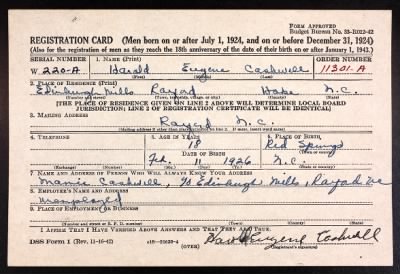 Form Approved
Budget Bureau No. 33-R012-42
REGISTRATION CARD (Men born on or after July 1, 1924, and on or before December 31, 1924)
(Also for the registration of men as they reach the 18th anniversary of the date of their birth on or after January 1, 1943.)
SERIAL NUMBER 1. NAME (Print) ORDER NUMBER
W 220-A Harold Eugene Cashwell 11301-A
2. PLACE OF RESIDENCE (Print)
Edinburgh Mills Raford Hoke N.C.
[THE PLACE OF RESIDENCE GIVEN ON LINE 2 ABOVE WILL DETERMINE LOCAL BOARD
JURISDICTION; LINE 2 OF REGISTRATION CERTIFICATE WILL BE IDENTICAL]
3. MAILING ADDRESS
Raeford N.C.
(Mailing address if other than place indicated on line 2. If same, insert word same)
4. TELEPHONE 5. AGE IN YEARS 6. PLACE OF BIRTH
18 Red Springs
DATE OF BIRTH
Feb. 11 1926 N.C.
(Exchange) (Number) (Mo.) (Day) (Yr.) (State or country)
7. NAME AND ADDRESS OF PERSON WHO WILL ALWAYS KNOW YOUR ADDRESS
Mamie Cashwell, % Edinburgh Mills, Raford N.C
8. EMPLOYER'S NAME AND ADDRESS
Unemployed
9. PLACE OF EMPLOYMENT OR BUSINESS
(Number and street or R. F. D. number) (Town) (County) (State)
I AFFIRM THAT I HAVE VERIFIED ABOVE ANSWERS AND THAT THEY ARE TRUE.
DSS Form 1 (Rev. 11-16-42) (OVER) Harold Eugene Cashwell
(Registrant's signature)